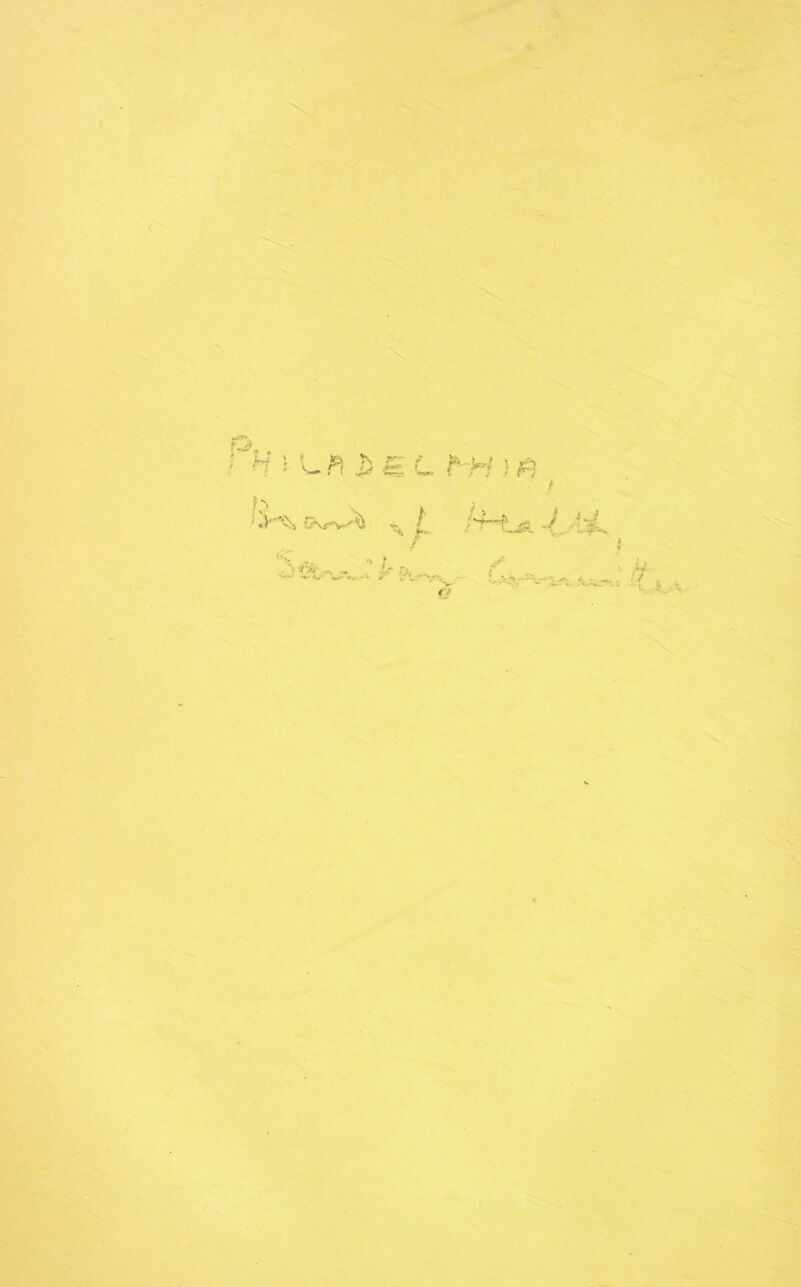 PHILADELPHIA,
Board of Health,
Sanitary Committee